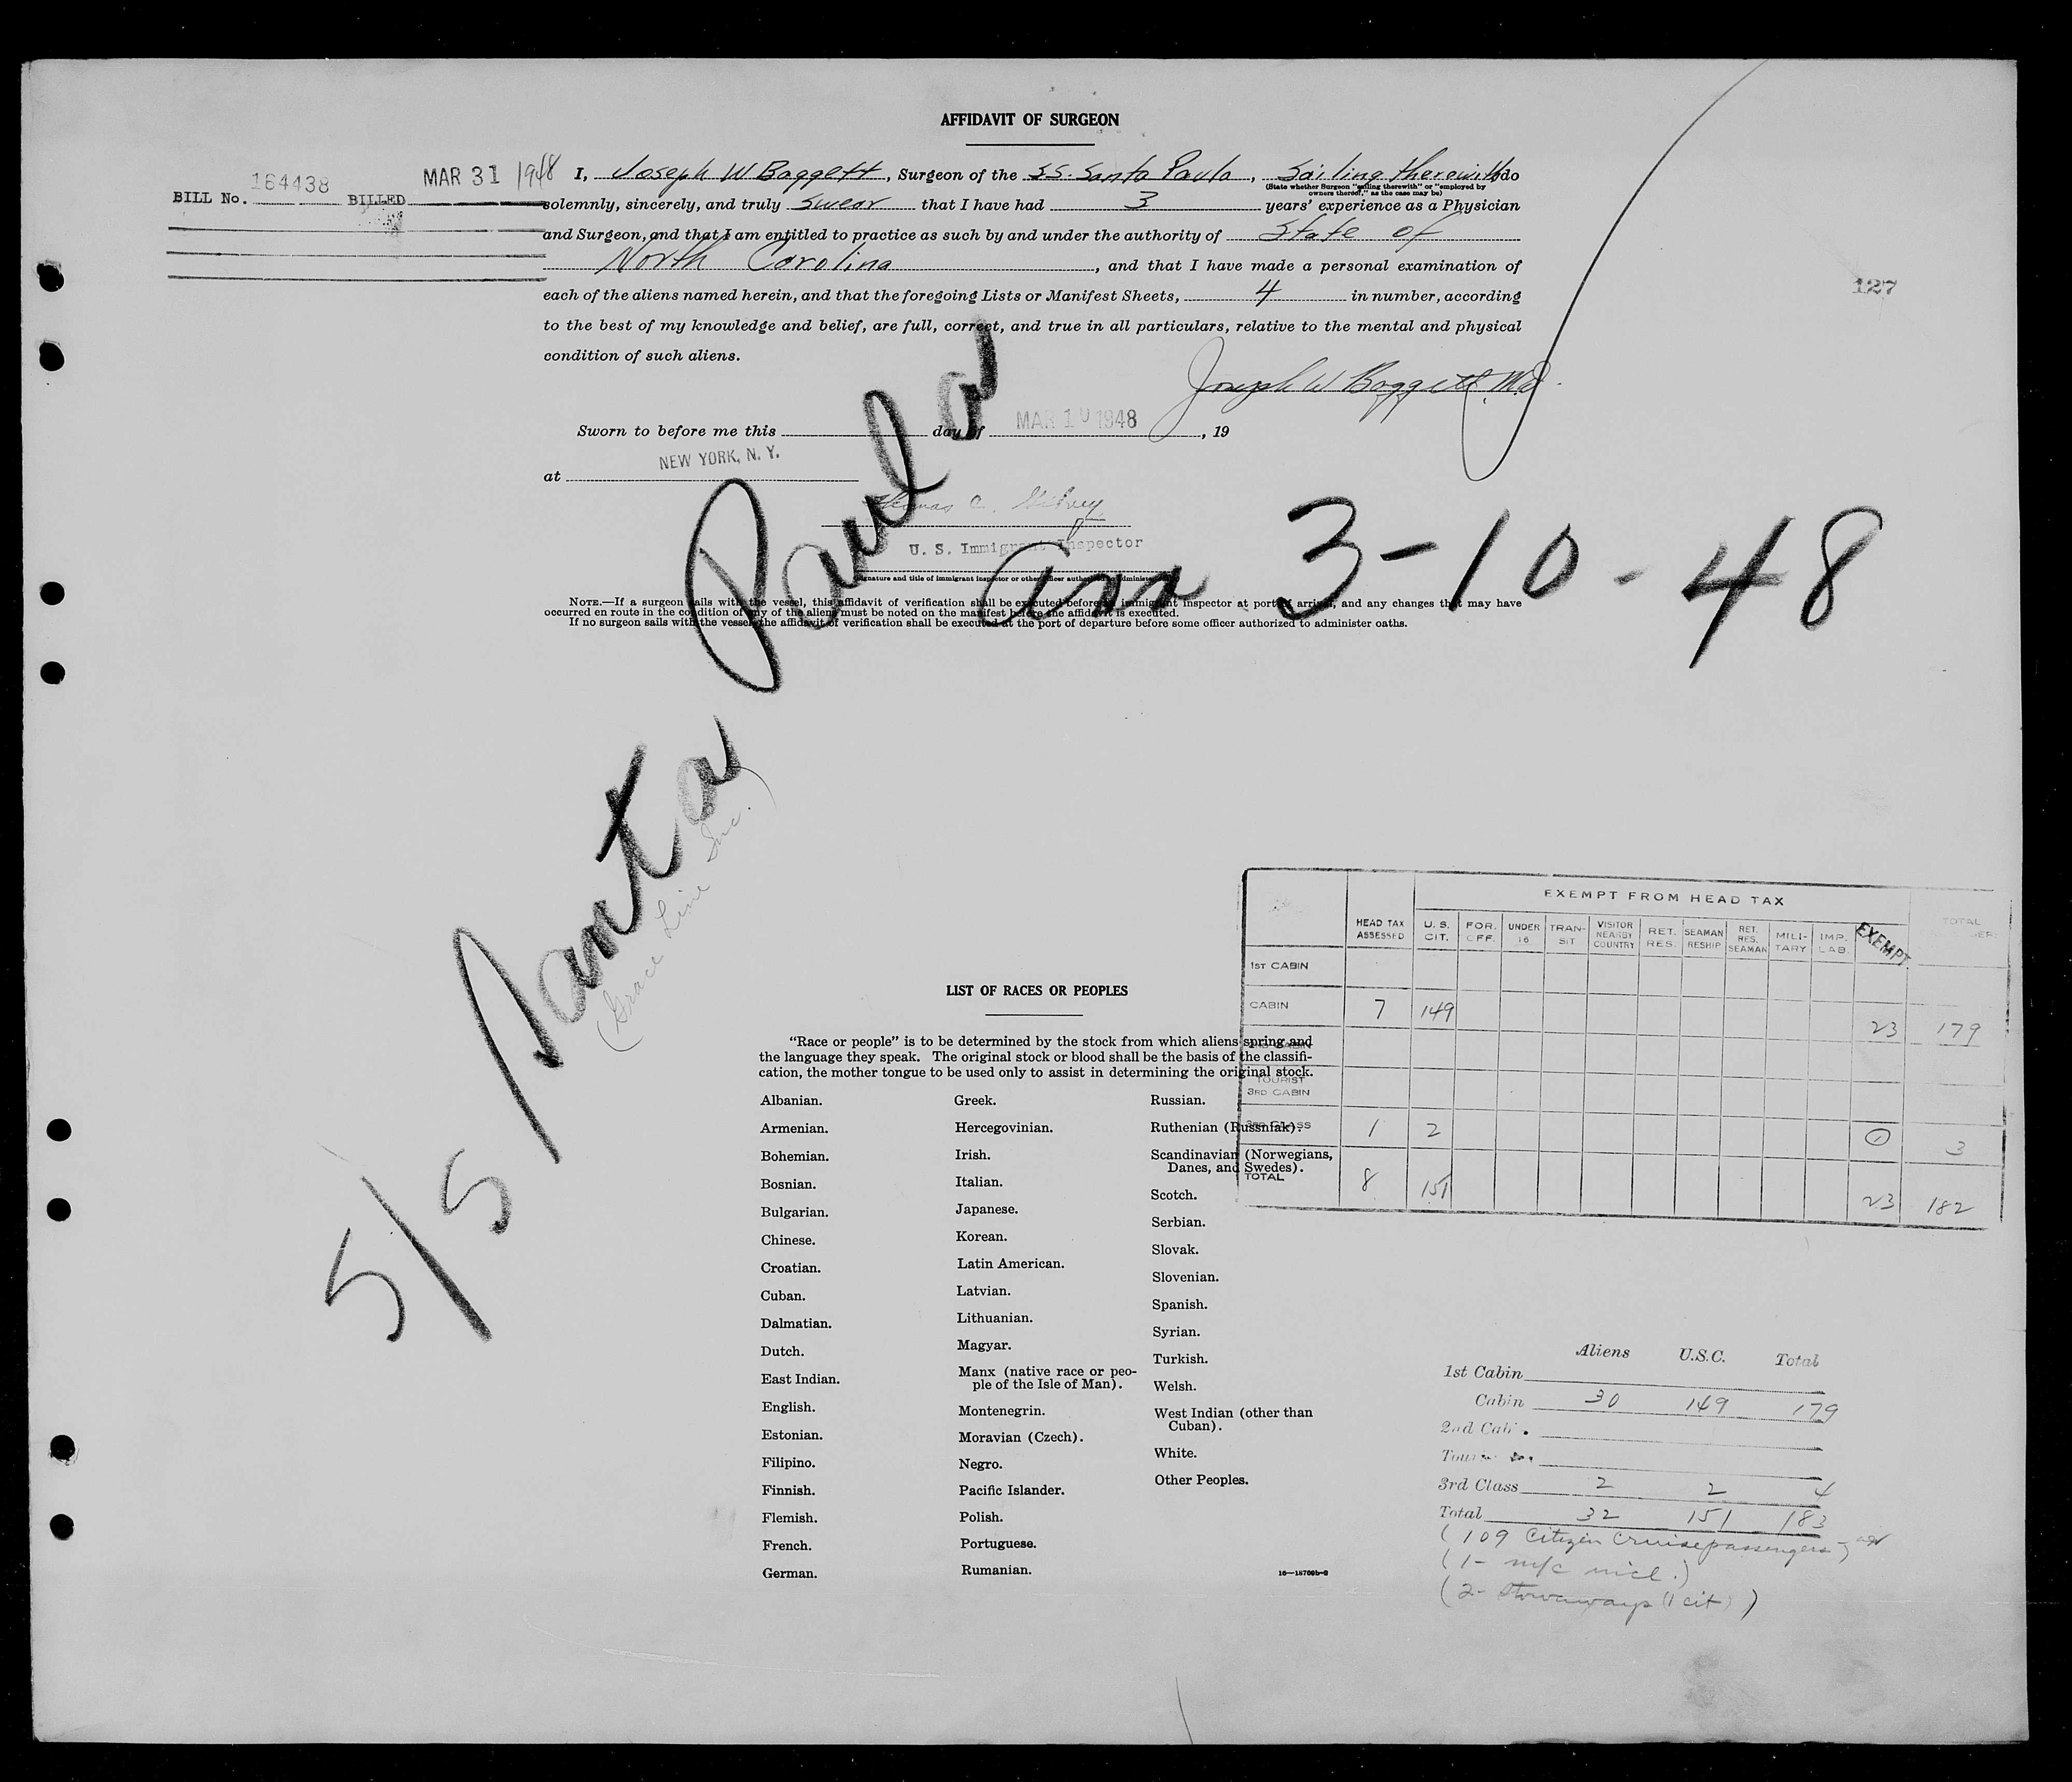 AFFIDAVIT OF SURGEON
BILL No. 164438 BILLED MAR 31 1948
I, Joseph W Baggett, Surgeon of the SS. Santa Paula, Sailing therewith do
(State whether Surgeon "sailing therewith" or "employed by
owners thereof," as the case may be)
solemnly, sincerely, and truly swear that I have had 3 years' experience as a Physician
and Surgeon, and that I am entitled to practice as such by and under the authority of State of
North Carolina, and that I have made a personal examination of
each of the aliens named herein, and that the foregoing Lists or Manifest Sheets, 4 in number, according
to the best of my knowledge and belief, are full, correct, and true in all particulars, relative to the mental and physical
condition of such aliens.
127
Joseph W Baggett, M.D.
Sworn to before me this day of MAR 10 1948, 19
at NEW YORK, N. Y.
Thomas C.
U. S. Immigrant Inspector
(Signature and title of immigrant inspector or other officer authorized to administer
NOTE.—If a surgeon sails with the vessel, this affidavit of verification shall be executed before an immigrant inspector at port of arrival, and any changes that may have
occurred en route in the condition of any of the aliens must be noted on the manifest before the affidavit is executed.
If no surgeon sails with the vessel, the affidavit of verification shall be executed at the port of departure before some officer authorized to administer oaths.
S/S Santa Paula
(Grace Line Inc.)
arr 3-10-48
EXEMPT FROM HEAD TAX
HEAD TAX ASSESSED U. S. CIT. FOR. OFF. UNDER 16 TRAN-SIT VISITOR NEARBY COUNTRY RET. RES. SEAMAN RESHIP RET. RES. SEAMAN MILI-TARY IMP. LAB. EXEMPT TOTAL
1ST CABIN
CABIN 7 149 23 179
2ND CABIN
TOURIST
3RD CABIN
3RD CLASS 1 2 3
TOTAL 8 151 23 182
LIST OF RACES OR PEOPLES
"Race or people" is to be determined by the stock from which aliens spring and
the language they speak. The original stock or blood shall be the basis of the classifi-
cation, the mother tongue to be used only to assist in determining the original stock.
Albanian.
Armenian.
Bohemian.
Bosnian.
Bulgarian.
Chinese.
Croatian.
Cuban.
Dalmatian.
Dutch.
East Indian.
English.
Estonian.
Filipino.
Finnish.
Flemish.
French.
German.
Greek.
Hercegovinian.
Irish.
Italian.
Japanese.
Korean.
Latin American.
Latvian.
Lithuanian.
Magyar.
Manx (native race or peo-
ple of the Isle of Man).
Montenegrin.
Moravian (Czech).
Negro.
Pacific Islander.
Polish.
Portuguese.
Rumanian.
Russian.
Ruthenian (Russniak).
Scandinavian (Norwegians,
Danes, and Swedes).
Scotch.
Serbian.
Slovak.
Slovenian.
Spanish.
Syrian.
Turkish.
Welsh.
West Indian (other than
Cuban).
White.
Other Peoples.
16—18760b-2
Aliens U.S.C. Total
1st Cabin
Cabin 30 149 179
2nd Cab
Tour
3rd Class 2 2 4
Total 32 151 183
(109 Citizen Cruise passengers)
(1- incl.)
(2- Stowaways (1 cit))